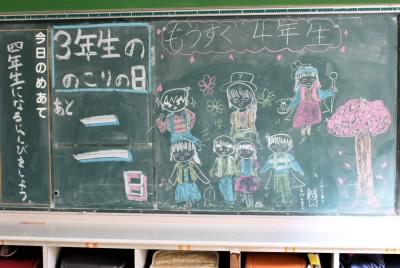 今日のめあて
四年生になるじゅんびをしよう
3年生の
のこりの日
あと
二
日
もうすぐ4年生